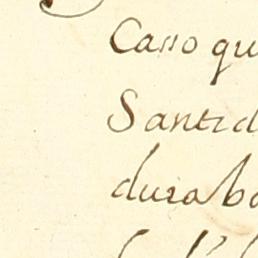 Caso qu
Santid
durabo